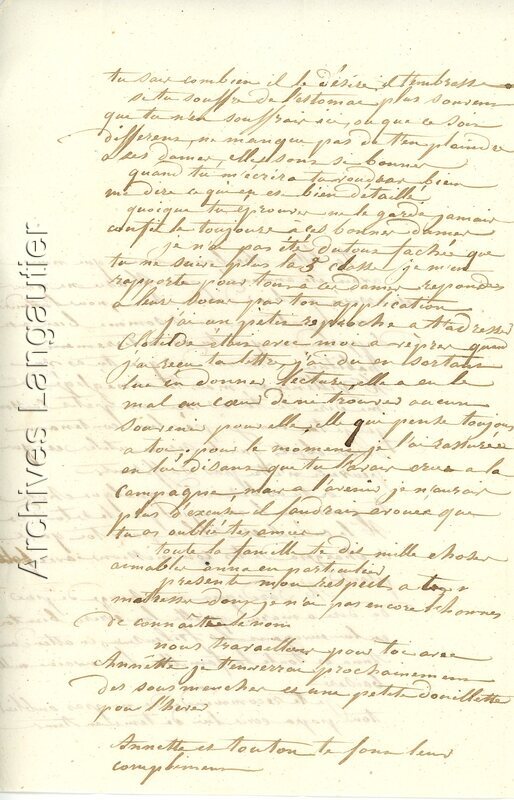 tu sais combien il le désire, il tembrasse
si tu souffre de l'estomac plus souvens
que tu n'en souffrais ici, ou que ce soir
differens, ne manque pas de t'en plaindre
a ses dames, elles sons si bonnes
quand tu m'écriras tu voudras bien
me dire ce qui en es bien détaillé
quoique tu éprouves ne le garde jamais
confie le toujours a ces bonnes dames
je n'ai pas été du tous faché que
tu ne suive plus la 5e classe, je m'en
rapporte pour tous a ces dames reponds
a leur soins par ton application
j'ai un petit reproche a t'adresser
Clotilde étais avec moi a quand
j'ai reçu ta lettre, j'ai du en sortans
lui en donner lecture, elle a eu le
mal au cœur de ne trouver aucun
souvenir pour elle, elle qui pense toujous
a toi. pour le momens je l'ai rassurée
en lui disans que tu l'avais crue a la
campagne, mais a l'avenir je n'aurais
plus d'excuse il faudrais avouer que
tu as oublié tes amies
toute la famille te dis mille choses
aimables anna en particulier
presente mon respect a tes
maîtresses dons je n'ai pas encore l'honneur
de connaitre le nom
nous travaillons pour toi avec
Annette je t'enverrai prochainement
des sous menches et une petite douillette
pour l'hiver
Annette et touton te fons leur
complimens
Archives Langautier